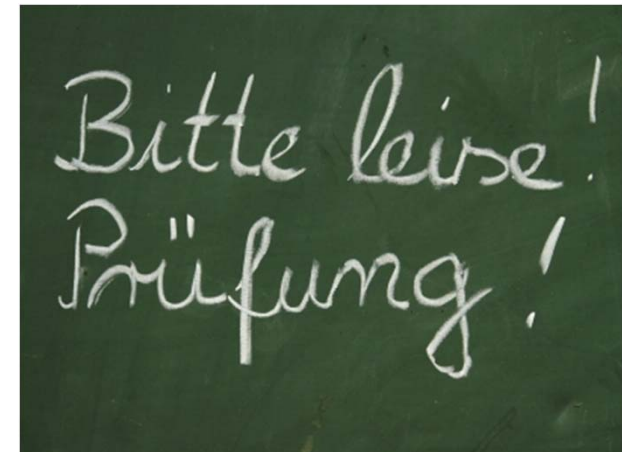 Bitte leise!
Prüfung!